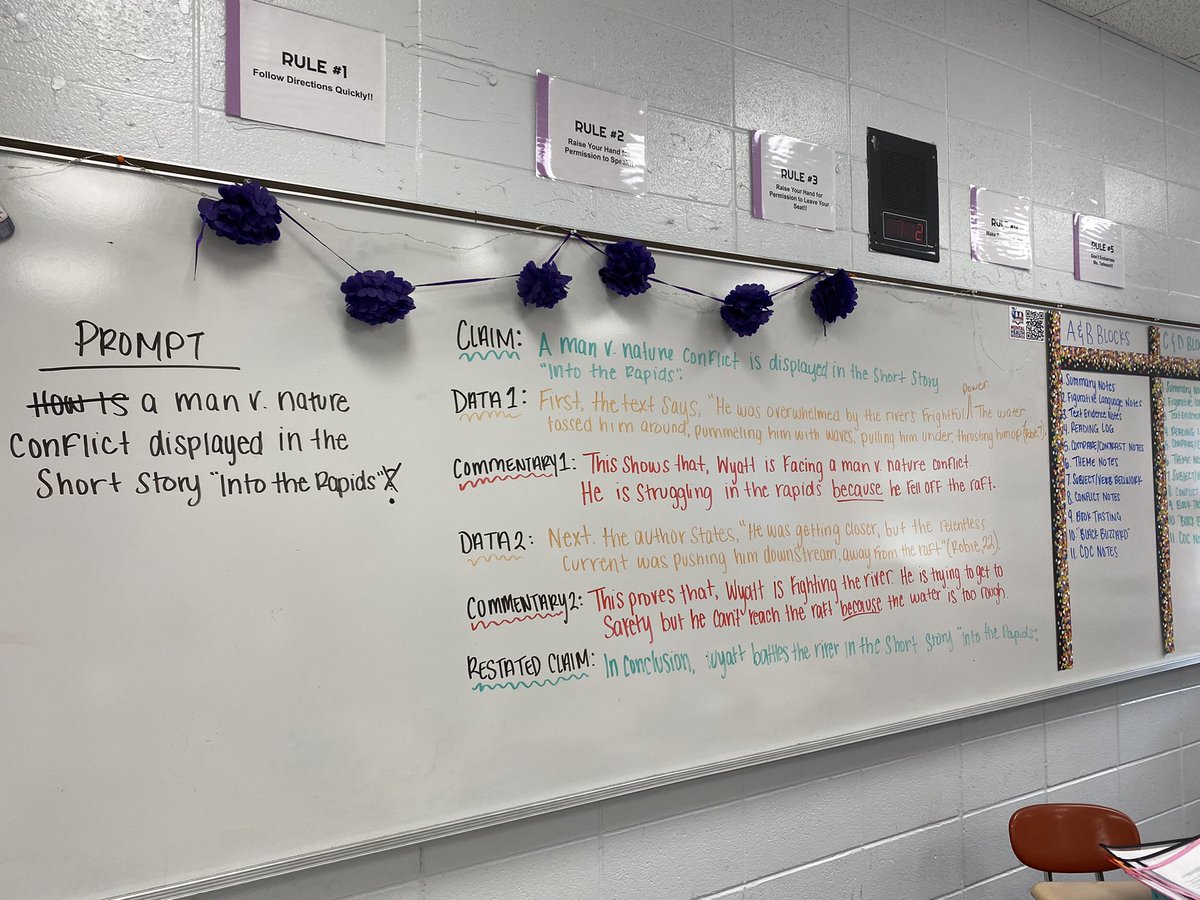 RULE #1
Follow Directions Quickly!!
RULE #2
Raise Your Hand for
Permission to Speak!!
RULE #3
Raise Your Hand for
Permission to Leave Your
Seat!!
RULE #5
PROMPT
How is a man v. nature
conflict displayed in the
short story "Into the Rapids"?
CLAIM: A man v. nature conflict is displayed in the short story
"Into the Rapids".
DATA 1: First, the text says, "He was overwhelmed by the river's frightful power. The water
tossed him around, pummeling him with waves, pulling him under, thrusting him up
COMMENTARY 1: This shows that, Wyatt is facing a man v. nature conflict.
He is struggling in the rapids because he fell off the raft.
DATA 2: Next, the author states, "He was getting closer, but the relentless
current was pushing him downstream, away from the raft" (Robie, 22).
COMMENTARY 2: This proves that, Wyatt is fighting the river. He is trying to get to
safety but he can't reach the raft because the water is too rough.
RESTATED CLAIM: In conclusion, Wyatt battles the river in the short story "Into the Rapids".
MENTAL
HEALTH
A & B BLOCKS
1. Summary Notes
2. Figurative Language Notes
3. Text Evidence Notes
4. READING LOG
5. COMPARE/CONTRAST NOTES
6. THEME NOTES
7. SUBJECT/VERB BELLWORK
8. CONFLICT NOTES
9. BOOK TASTING
10. "BLACK BUZZARD"
11. CDC NOTES
C & D